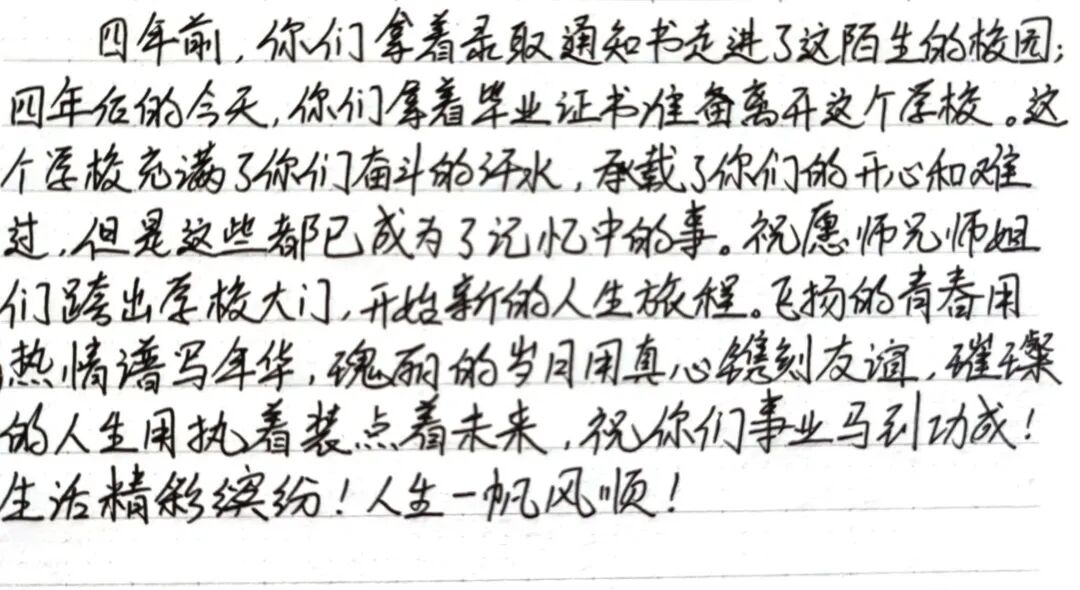 四年前,你们拿着录取通知书走进了这陌生的校园;
四年后的今天,你们拿着毕业证书准备离开这个学校。这
个学校充满了你们奋斗的汗水,承载了你们的开心和难
过,但是这些都已成为了记忆中的事。祝愿师兄师姐
们跨出学校大门,开始新的人生旅程。飞扬的青春用
热情谱写年华,瑰丽的岁月用真心镌刻友谊,璀璨
的人生用执着装点着未来,祝你们事业马到功成!
生活精彩缤纷!人生一帆风顺!